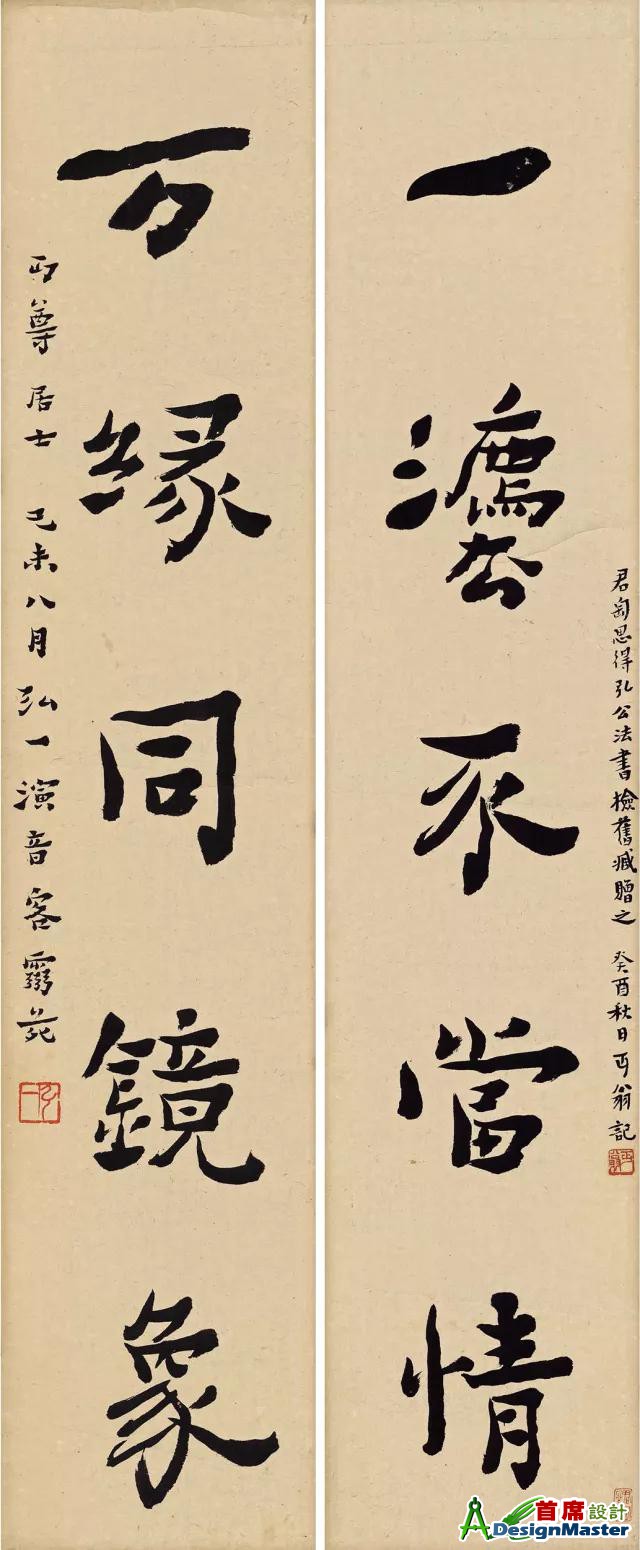 君匋思得弘公法書檢舊臧贈之 癸酉秋日丏翁記
一灋不當情
万緣同鏡象
丏尊居士 己未八月弘一演音客靈苑
弘一
首席設計
DesignMaster